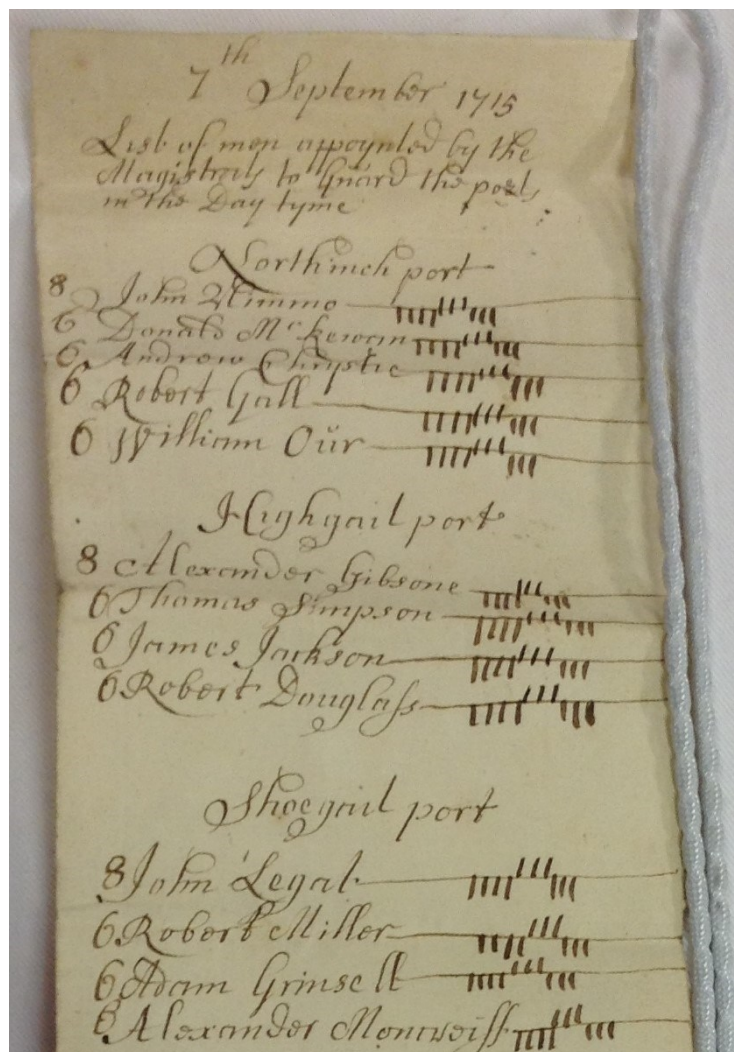 7th September 1715
List of men appoynted by the
Magistrats to Guard the ports
in the Day tyme
Northinch port
8 John Nimmo
6 Donald McKewan
6 Andrew Chrystie
6 Robert Gall
6 William Oür
Highgait port
8 Alexander Gibsone
6 Thomas Simpson
6 James Jackson
6 Robert Douglass
Shoegait port
8 John Legat
6 Robert Miller
6 Adam Grinsell
6 Alexander Moncreiff